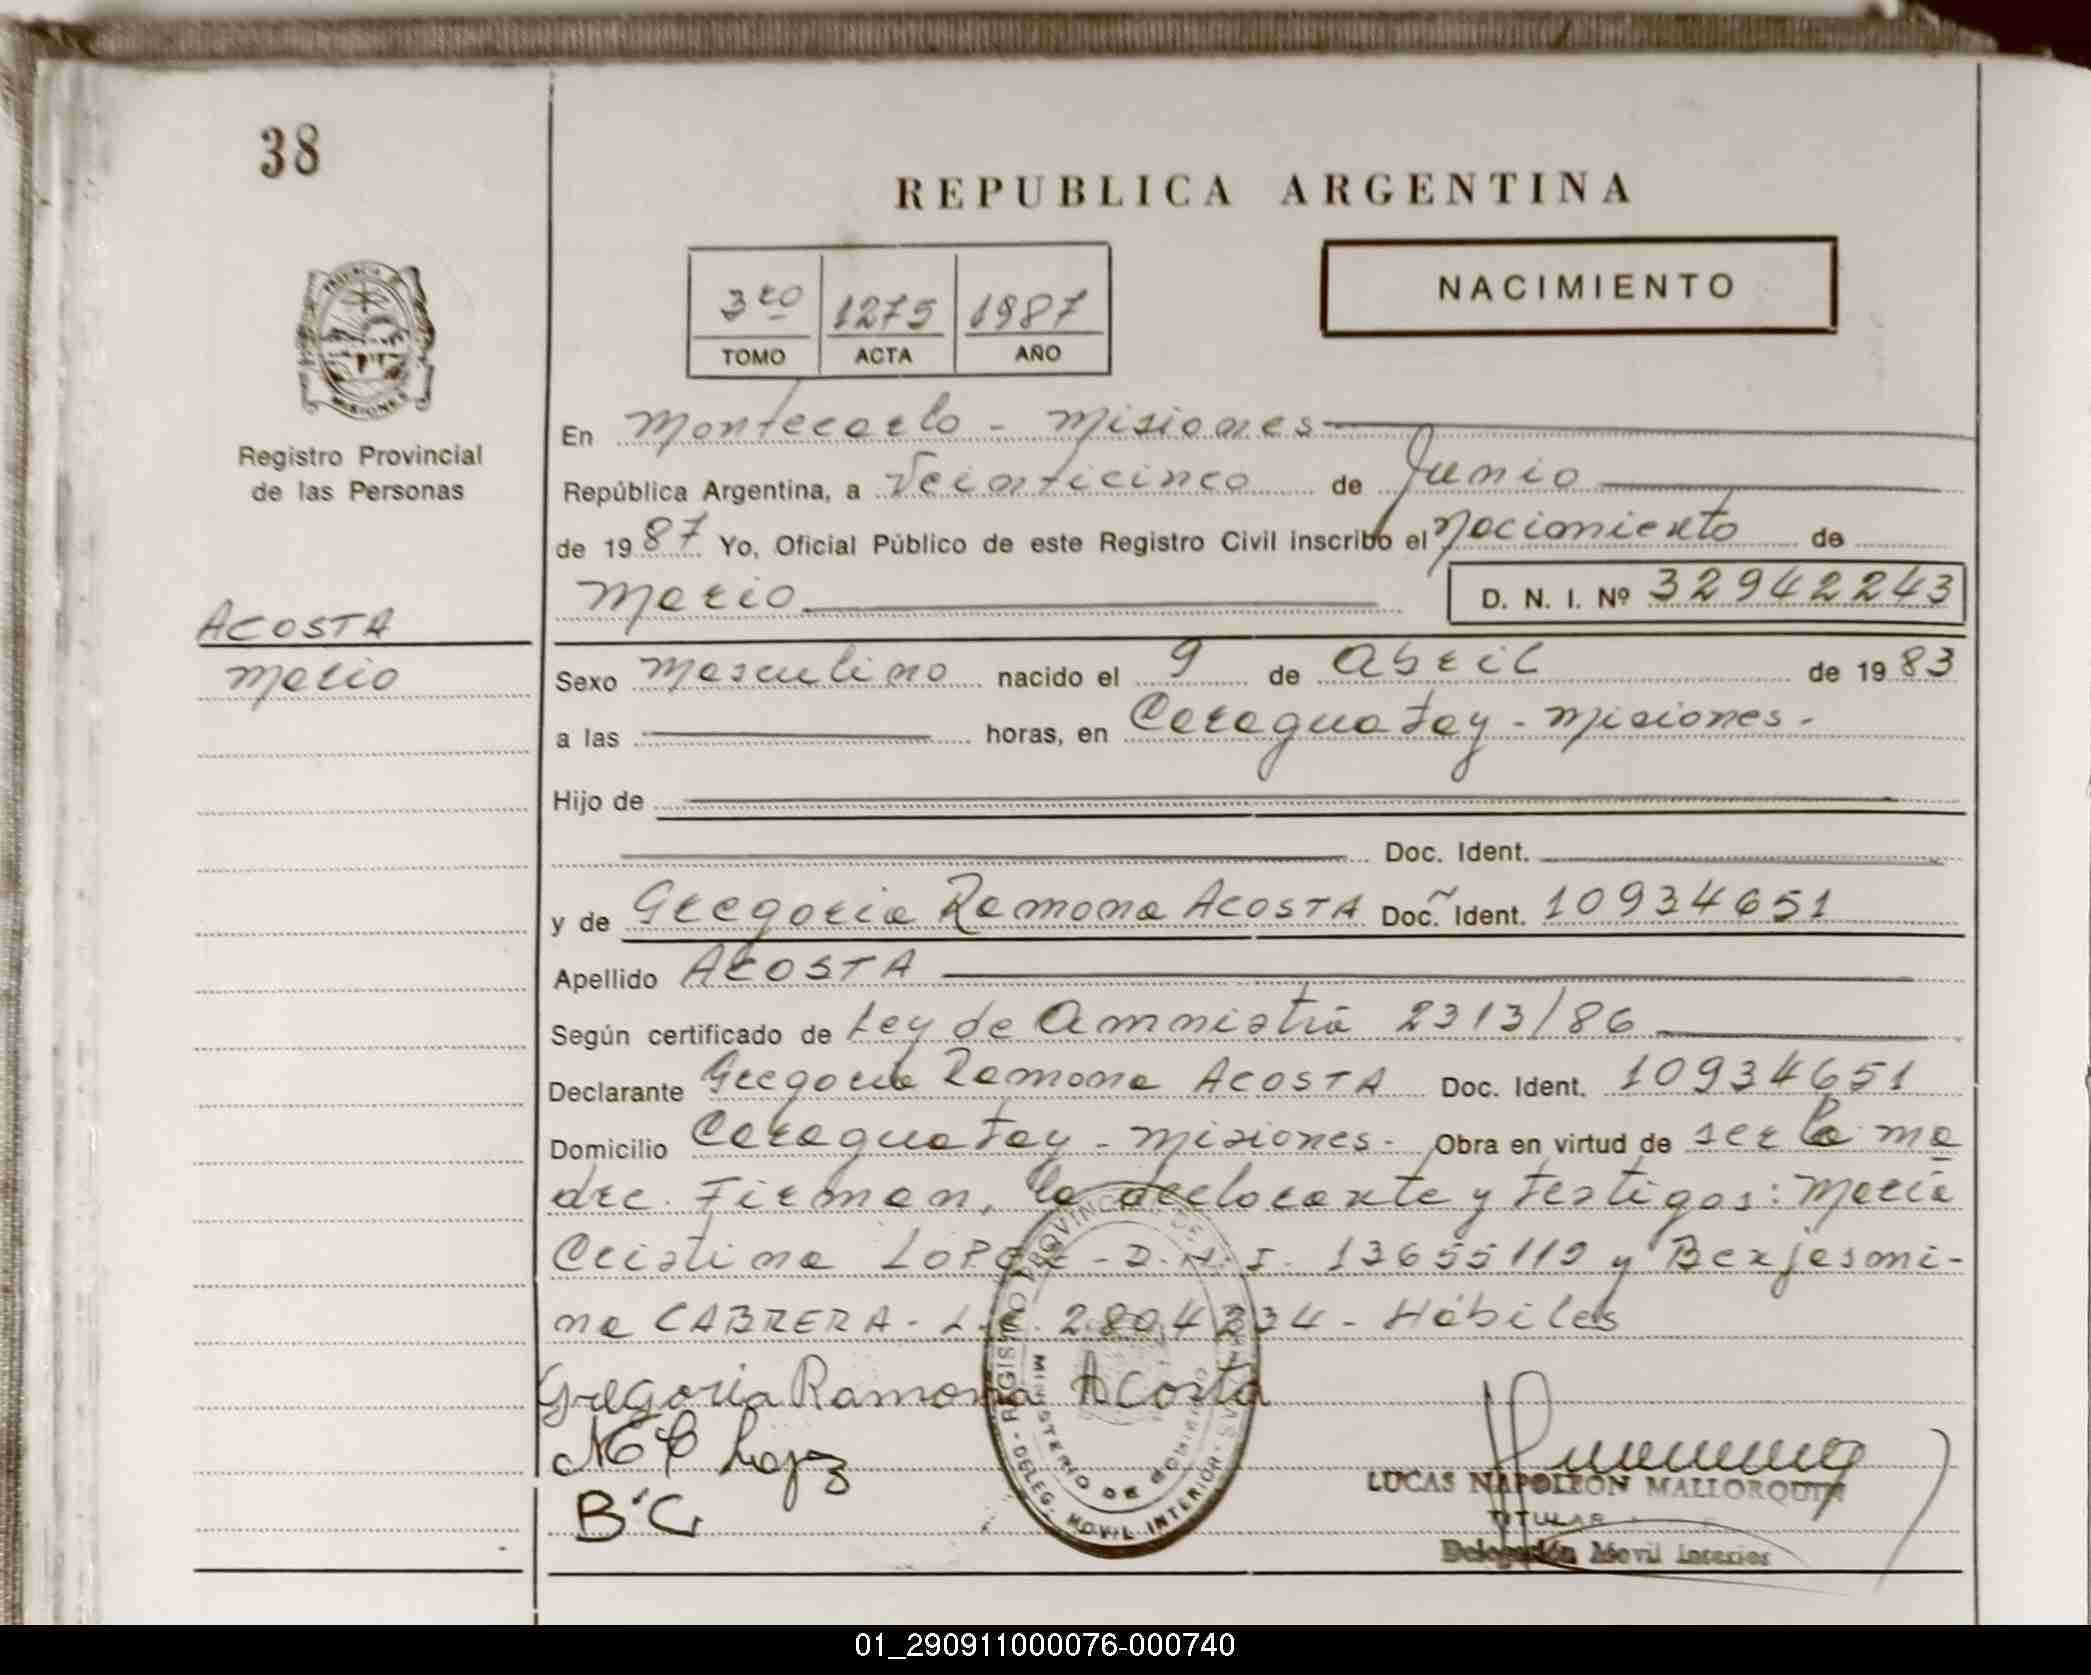 38
REPUBLICA ARGENTINA
3ro 1275 1987
TOMO ACTA AÑO
NACIMIENTO
PROVINCIA
MISIONES
Registro Provincial
de las Personas
En Montecarlo - Misiones
República Argentina, a Veinticinco de Junio
de 1987 Yo, Oficial Público de este Registro Civil inscribo el Nacimiento de
Mario D. N. I. Nº 32942243
ACOSTA
Mario
Sexo Masculino nacido el 9 de Abril de 1983
a las horas, en Caraguatay - Misiones.
Hijo de
Doc. Ident.
y de Gregoria Ramona ACOSTA Doc. Ident. 10934651
Apellido ACOSTA
Según certificado de Ley de Amnistía 2313/86
Declarante Gregoria Ramona ACOSTA Doc. Ident. 10934651
Domicilio Caraguatay - Misiones - Obra en virtud de ser la ma
dre. Firman, la declarante y testigos: María
Cristina LOPEZ - D.N.I. 13655119 y Benjasmi-
na CABRERA - L.C. 2804234 - Hábiles
Gregoria Ramona Acosta
M C Lopez
B C
REGISTRO PROVINCIAL DE LAS PERSONAS
MINISTERIO DE GOBIERNO
DELEG. MOVIL INTERIOR
LUCAS NAPOLEON MALLORQUIN
TITULAR
Delegación Movil Interior
01_290911000076-000740